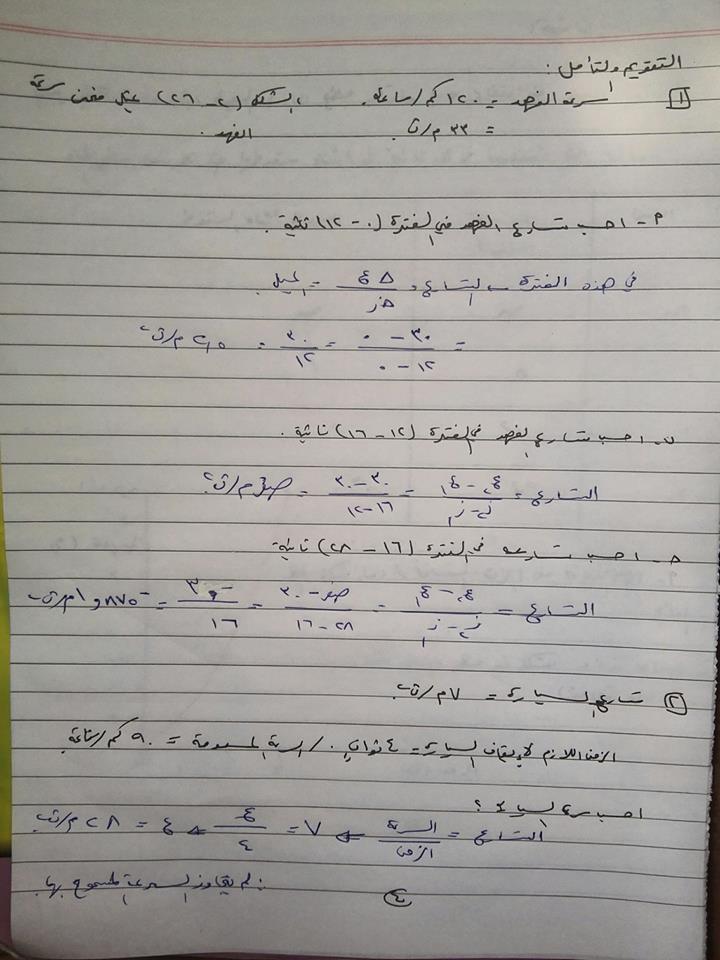 التقويم والتأمل :
١ سرعة الفهد = ١٢٠ كم/ساعة . الشكل (٢ - ٢٦) يمثل منحنى سرعة
= ٣٣ م/ث الفهد .
أ - احسب تسارع الفهد في الفترة (٠ - ١٢) ثانية .
في هذه الفترة التسارع = Δع / Δز = الميل
= ٣٠ - ٠ / ١٢ - ٠ = ٣٠ / ١٢ = ٢,٥ م/ث٢
ب - احسب تسارع الفهد في الفترة (١٢ - ١٦) ثانية .
التسارع = ع٢ - ع١ / ز٢ - ز١ = ٣٠ - ٣٠ / ١٦ - ١٢ = صفر م/ث٢
ح - احسب تسارعه في الفترة (١٦ - ٢٨) ثانية
التسارع = ع٢ - ع١ / ز٢ - ز١ = صفر - ٣٠ / ٢٨ - ١٦ = -٣٠ / ١٦ = -٨٧٥و١ م/ث٢
٢ تسارع السيارة = ٧ م/ث٢
الزمن اللازم لإيقاف السيارة = ٤ ثوان . / السرعة المسموحة = ٩٠ كم/ساعة
احسب سرعة السيارة ؟
التسارع = السرعة / الزمن ⇐ ٧ = ع / ٤ ⇐ ع = ٢٨ م/ث
∴ لم يتجاوز السرعة المسموح بها
٤